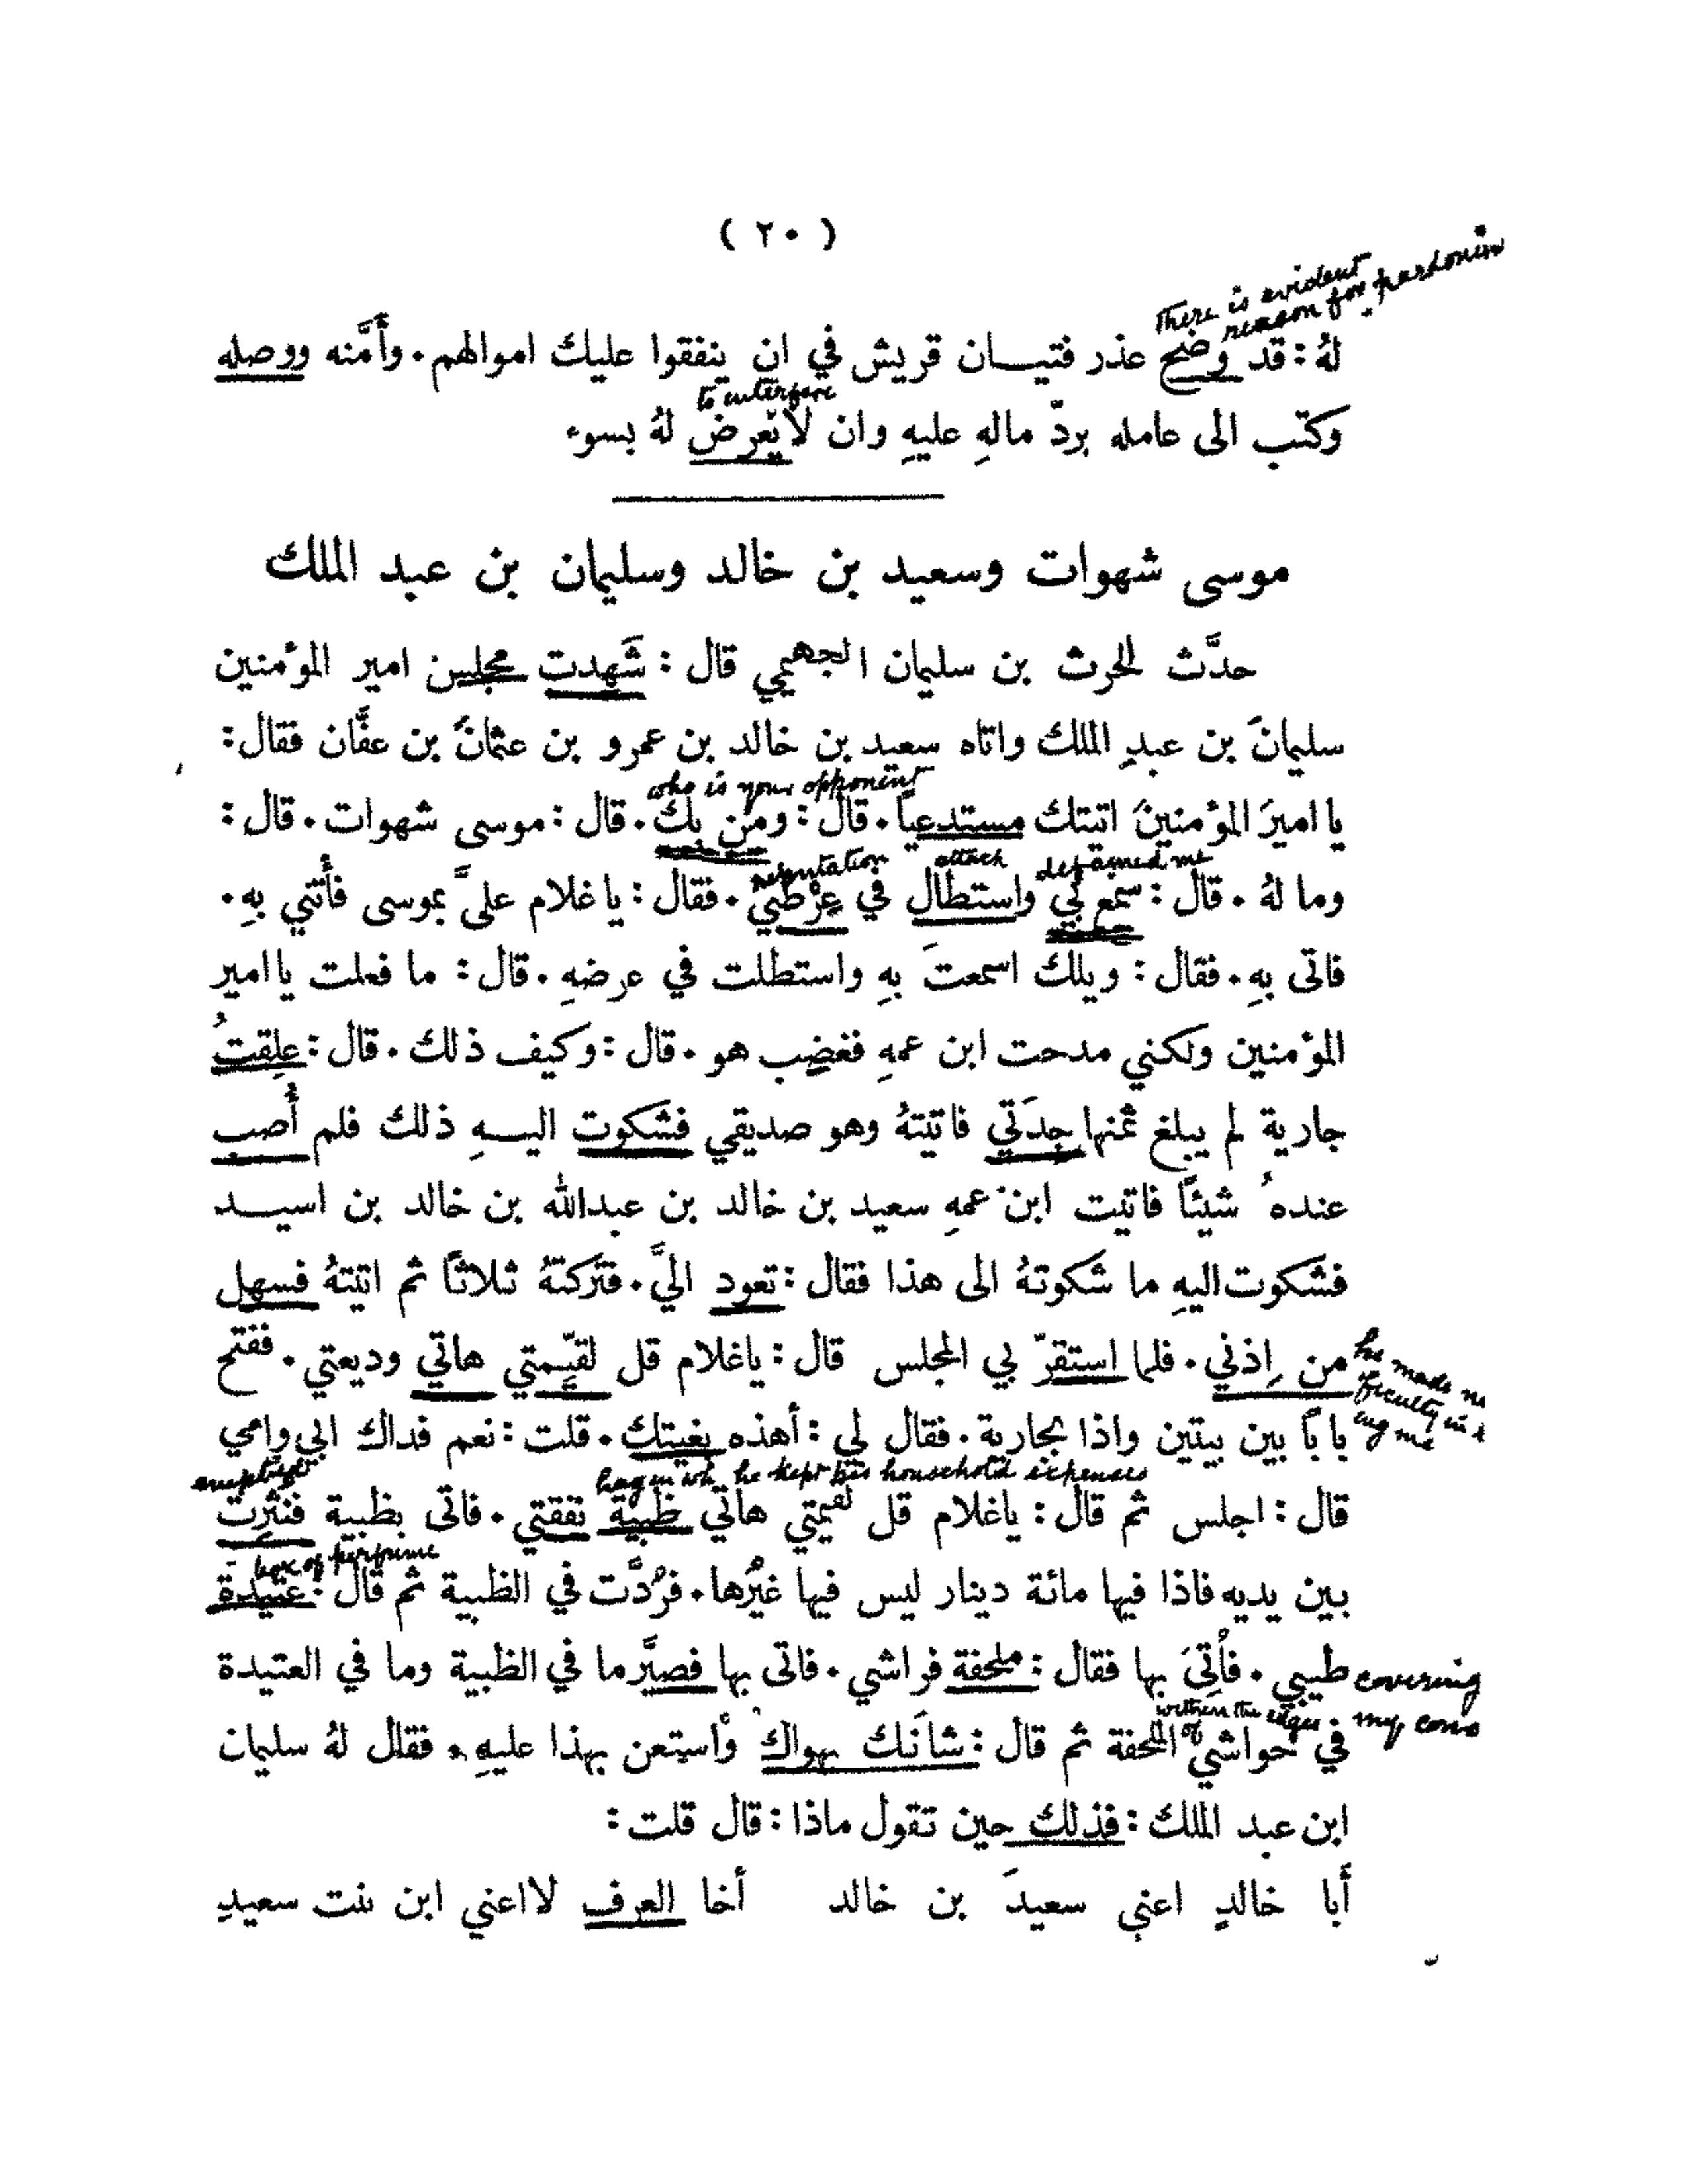 ( ٢٠ )
There is evident
reason for pardonin
لهُ : قد وضح عذر فتيـــان قريش في ان ينفقوا عليك اموالهم ٠ وأَمَّنه ووصله
to interfere
وكتب الى عامله بردّ مالهِ عليهِ وان لا يَعرض لهُ بسوء
موسى شهوات وسعيد بن خالد وسليمان بن عبد الملك
حدَّث الحرث بن سليمان الجهيمي قال : شَهِدت مجلس امير المؤمنين
سليمانَ بن عبدِ الملك واتاه سعيد بن خالد بن عمرو بن عثمانَ بن عفَّان فقال :
who is your opponent
يا اميرَ المؤمنينَ اتيتك مستدعياً ٠ قال : ومن بك ٠ قال : موسى شهوات ٠ قال :
reputation attack defamed me
وما لهُ ٠ قال : سمع بي واستطال في عِرْضي ٠ فقال : يا غلام عليَّ بموسى فأتني بهِ ٠
فاتى بهِ ٠ فقال : ويلك اسمعتَ بهِ واستطلت في عرضهِ ٠ قال : ما فعلت يا امير
المؤمنين ولكني مدحت ابن عمهِ فغضِب هو ٠ قال : وكيف ذلك ٠ قال : علِقتُ
جارية لم يبلغ ثمنها جِدَتي فاتيتهُ وهو صديقي فشكوت اليـــهِ ذلك فلم أُصب
عندهُ شيئاً فاتيت ابن عمهِ سعيد بن خالد بن عبدالله بن خالد بن اسيـــد
فشكوت اليهِ ما شكوتهُ الى هذا فقال : تعود اليَّ ٠ فتركتهُ ثلاثاً ثم اتيتهُ فسهل
من اِذني ٠ فلما استقرّ بي المجلس قال : ياغلام قل لقيّمتي هاتي وديعتي ٠ ففتح
he made
باباً بين بيتين واذا بجارية ٠ فقال لي : أهذه بغيتك ٠ قلت : نعم فداك ابي وامي
emptied bag in wh. he kept his household expenses
قال : اجلس ثم قال : ياغلام قل لقيمتي هاتي ظبية نفقتي ٠ فاتى بظبية فنثرت
box of perfume
بين يديه فاذا فيها مائة دينار ليس فيها غيرُها ٠ فرُدَّت في الظبية ثم قال : عتيدة
طيبي ٠ فأُتِيَ بها فقال : ملحفة فراشي ٠ فاتى بها فصيَّر ما في الظبية وما في العتيدة
covering
within the edges of my
في حواشي الملحفة ثم قال : شأنَك بهواك واستعن بهذا عليهِ ٠ فقال لهُ سليمان
ابن عبد الملك : فذلك حين تقول ماذا : قال قلت :
أَبا خالدٍ اعني سعيدَ بن خالد أخا العرف لااعني ابن بنت سعيدِ